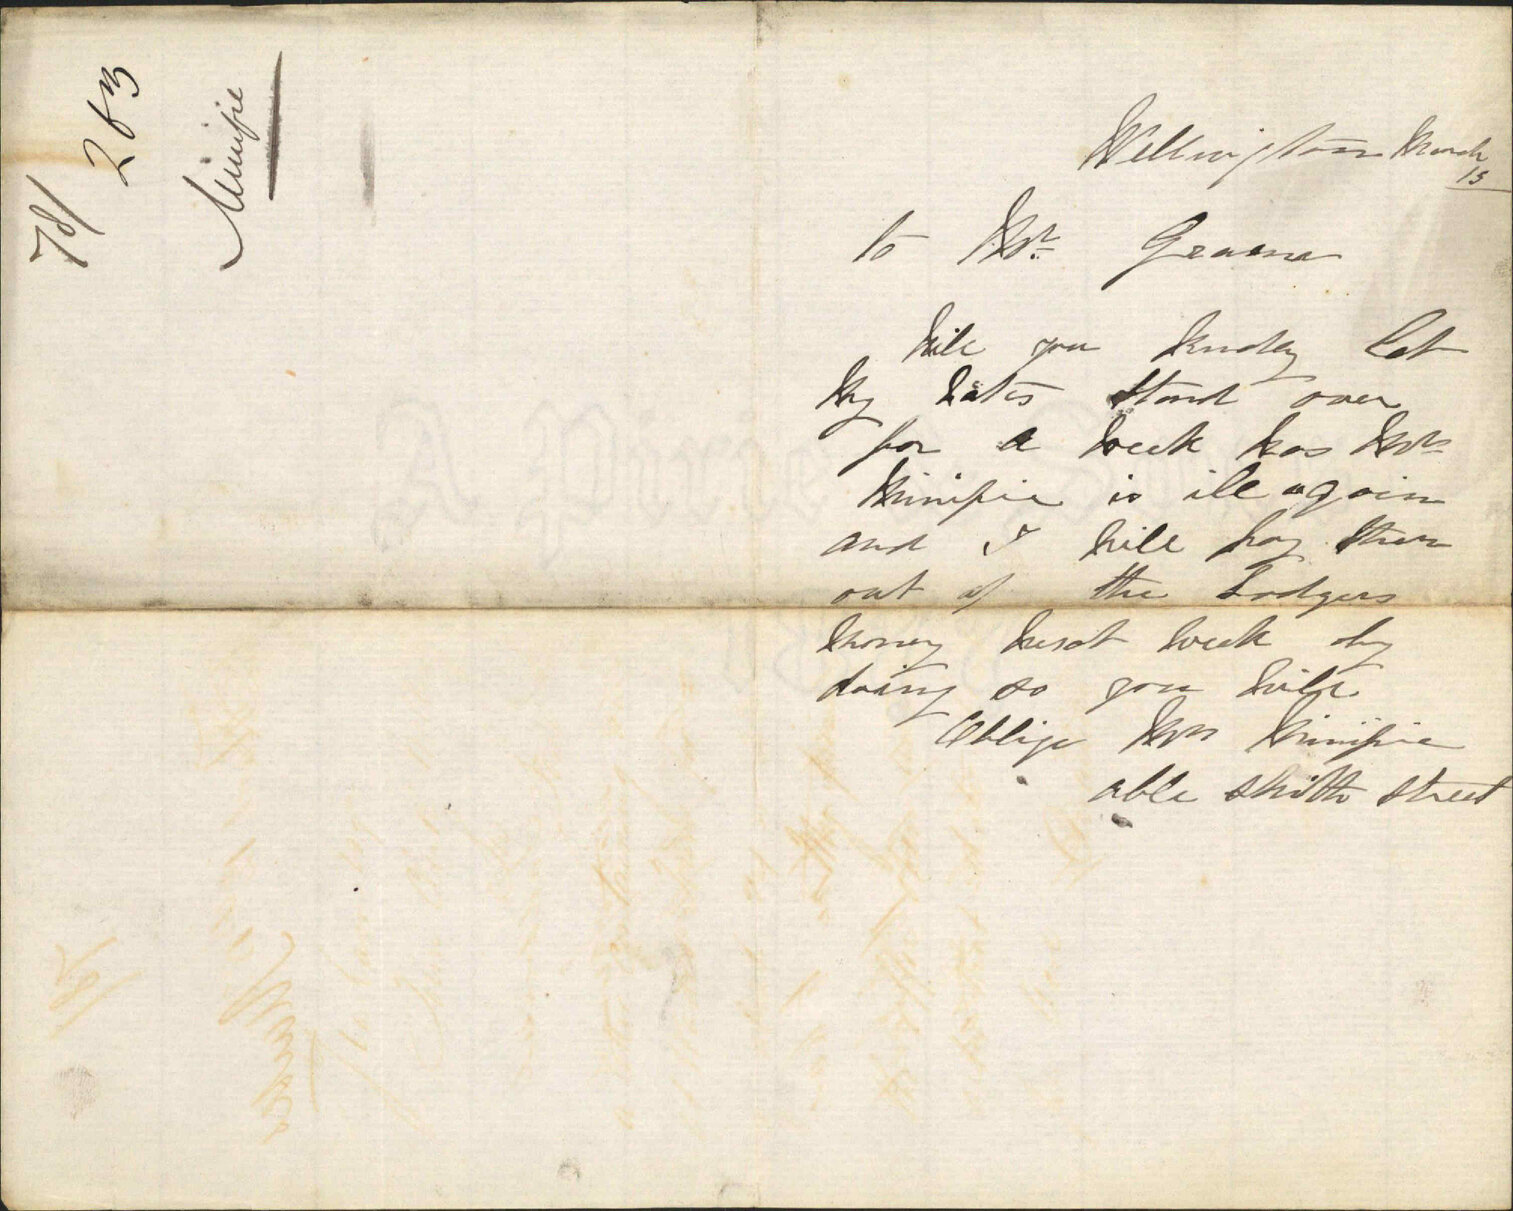 78/
283
Minifie
Wellington March
15
to Mr Greane
Will you kindly Let
My Rates Stand over
for a Week has Mr
Minifie is ill again
and I Will Pay them
out of the Lodgers
Money Next Week by
doing so you Will
Oblige Mrs Minifie
able Smith Street